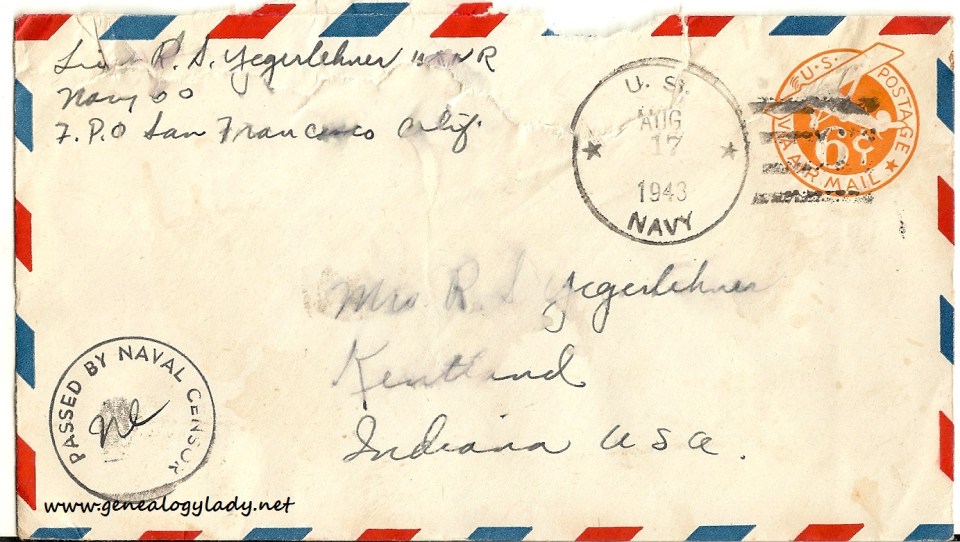 R. S. Yegerlehner
Navy 60
F. P. O San Francisco Calif.
U. S.
AUG
17
1943
NAVY
U.S. POSTAGE
6¢
VIA AIR MAIL
Mrs R. S Yegerlehner
Kentland
Indiana U S A.
PASSED BY NAVAL CENSOR
www.genealogylady.net